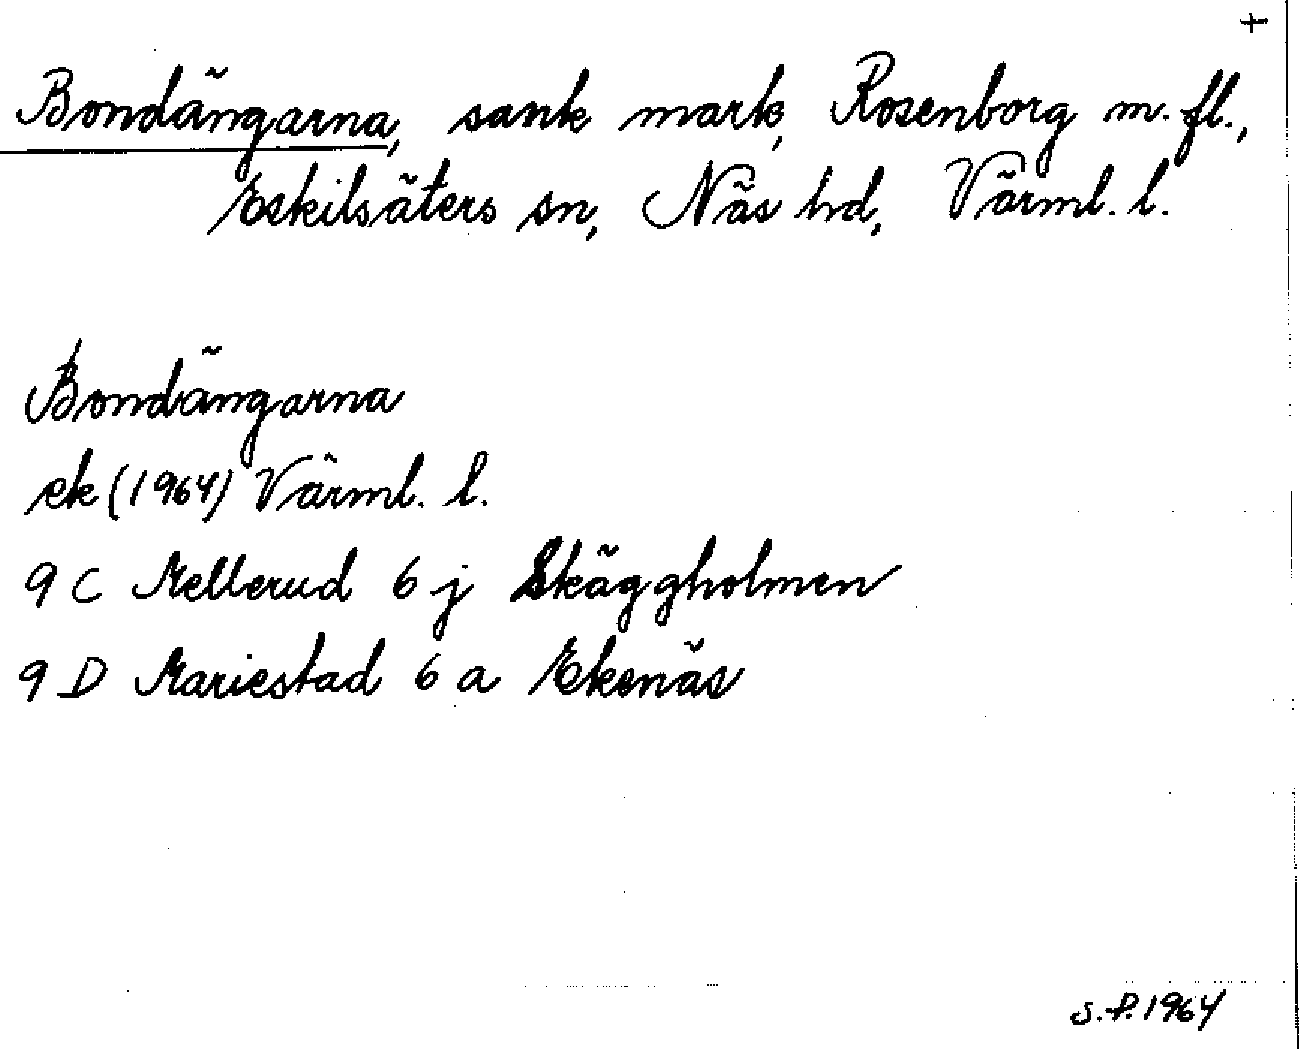 +
Bondängarna, sank mark, Rosenborg m. fl.,
Eskilsäters sn, Näs hd, Värml. l.
Bondängarna
ek (1964) Värml. l.
9 C Mellerud 6 j Skäggholmen
9 D Mariestad 6 a Ekenäs
S.-P. 1964